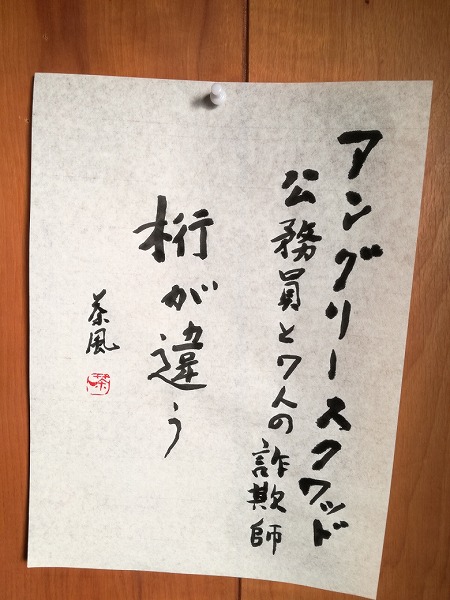 アングリースクワッド
公務員と7人の詐欺師
桁が違う
茶風